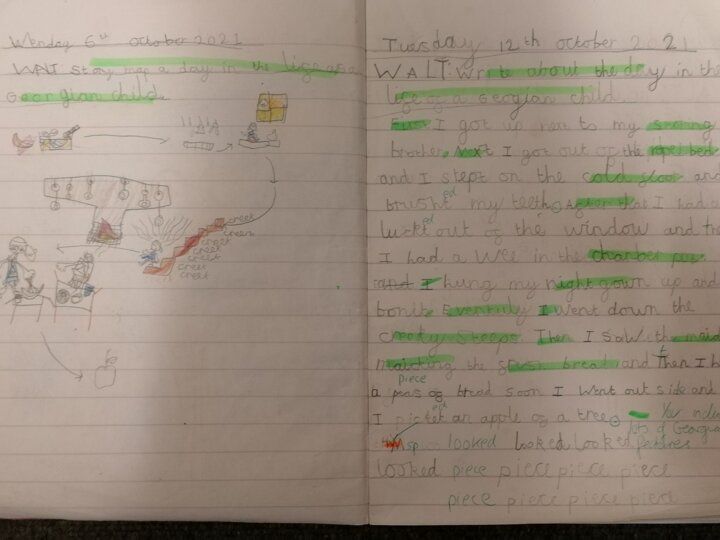 Wenday 6th october 2021
WALT story map a day in the life of a
Georgian child.
creet
creem
creet
creet
creet
creet
creet
Tuesday 12th october 2021
WALT: Write about the day in the
life of a Georgian child.
First I got up next to my snoring
brother. Next I got out of the roped bed
and I stept on the cold floor and
brusht ed my teeth. After that I had a
luckt ed out of the window and the
I had a wee in the chamber
and I hung my night gown up and
bonit. Eventuly I went down the
creeky steeps. Then I saw the maid
maicking the bread and Then I h
piece
a peas of bread soon I went out side and
I an apple of a tree. You inclu
sp looked looked looked lots of Georgian features
looked piece piece piece piece
piece piece piece piece